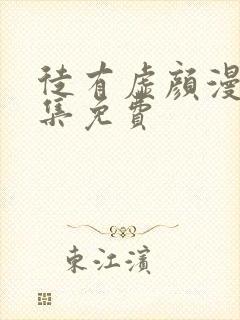 徒有虛顏漫
集免費
東江濱